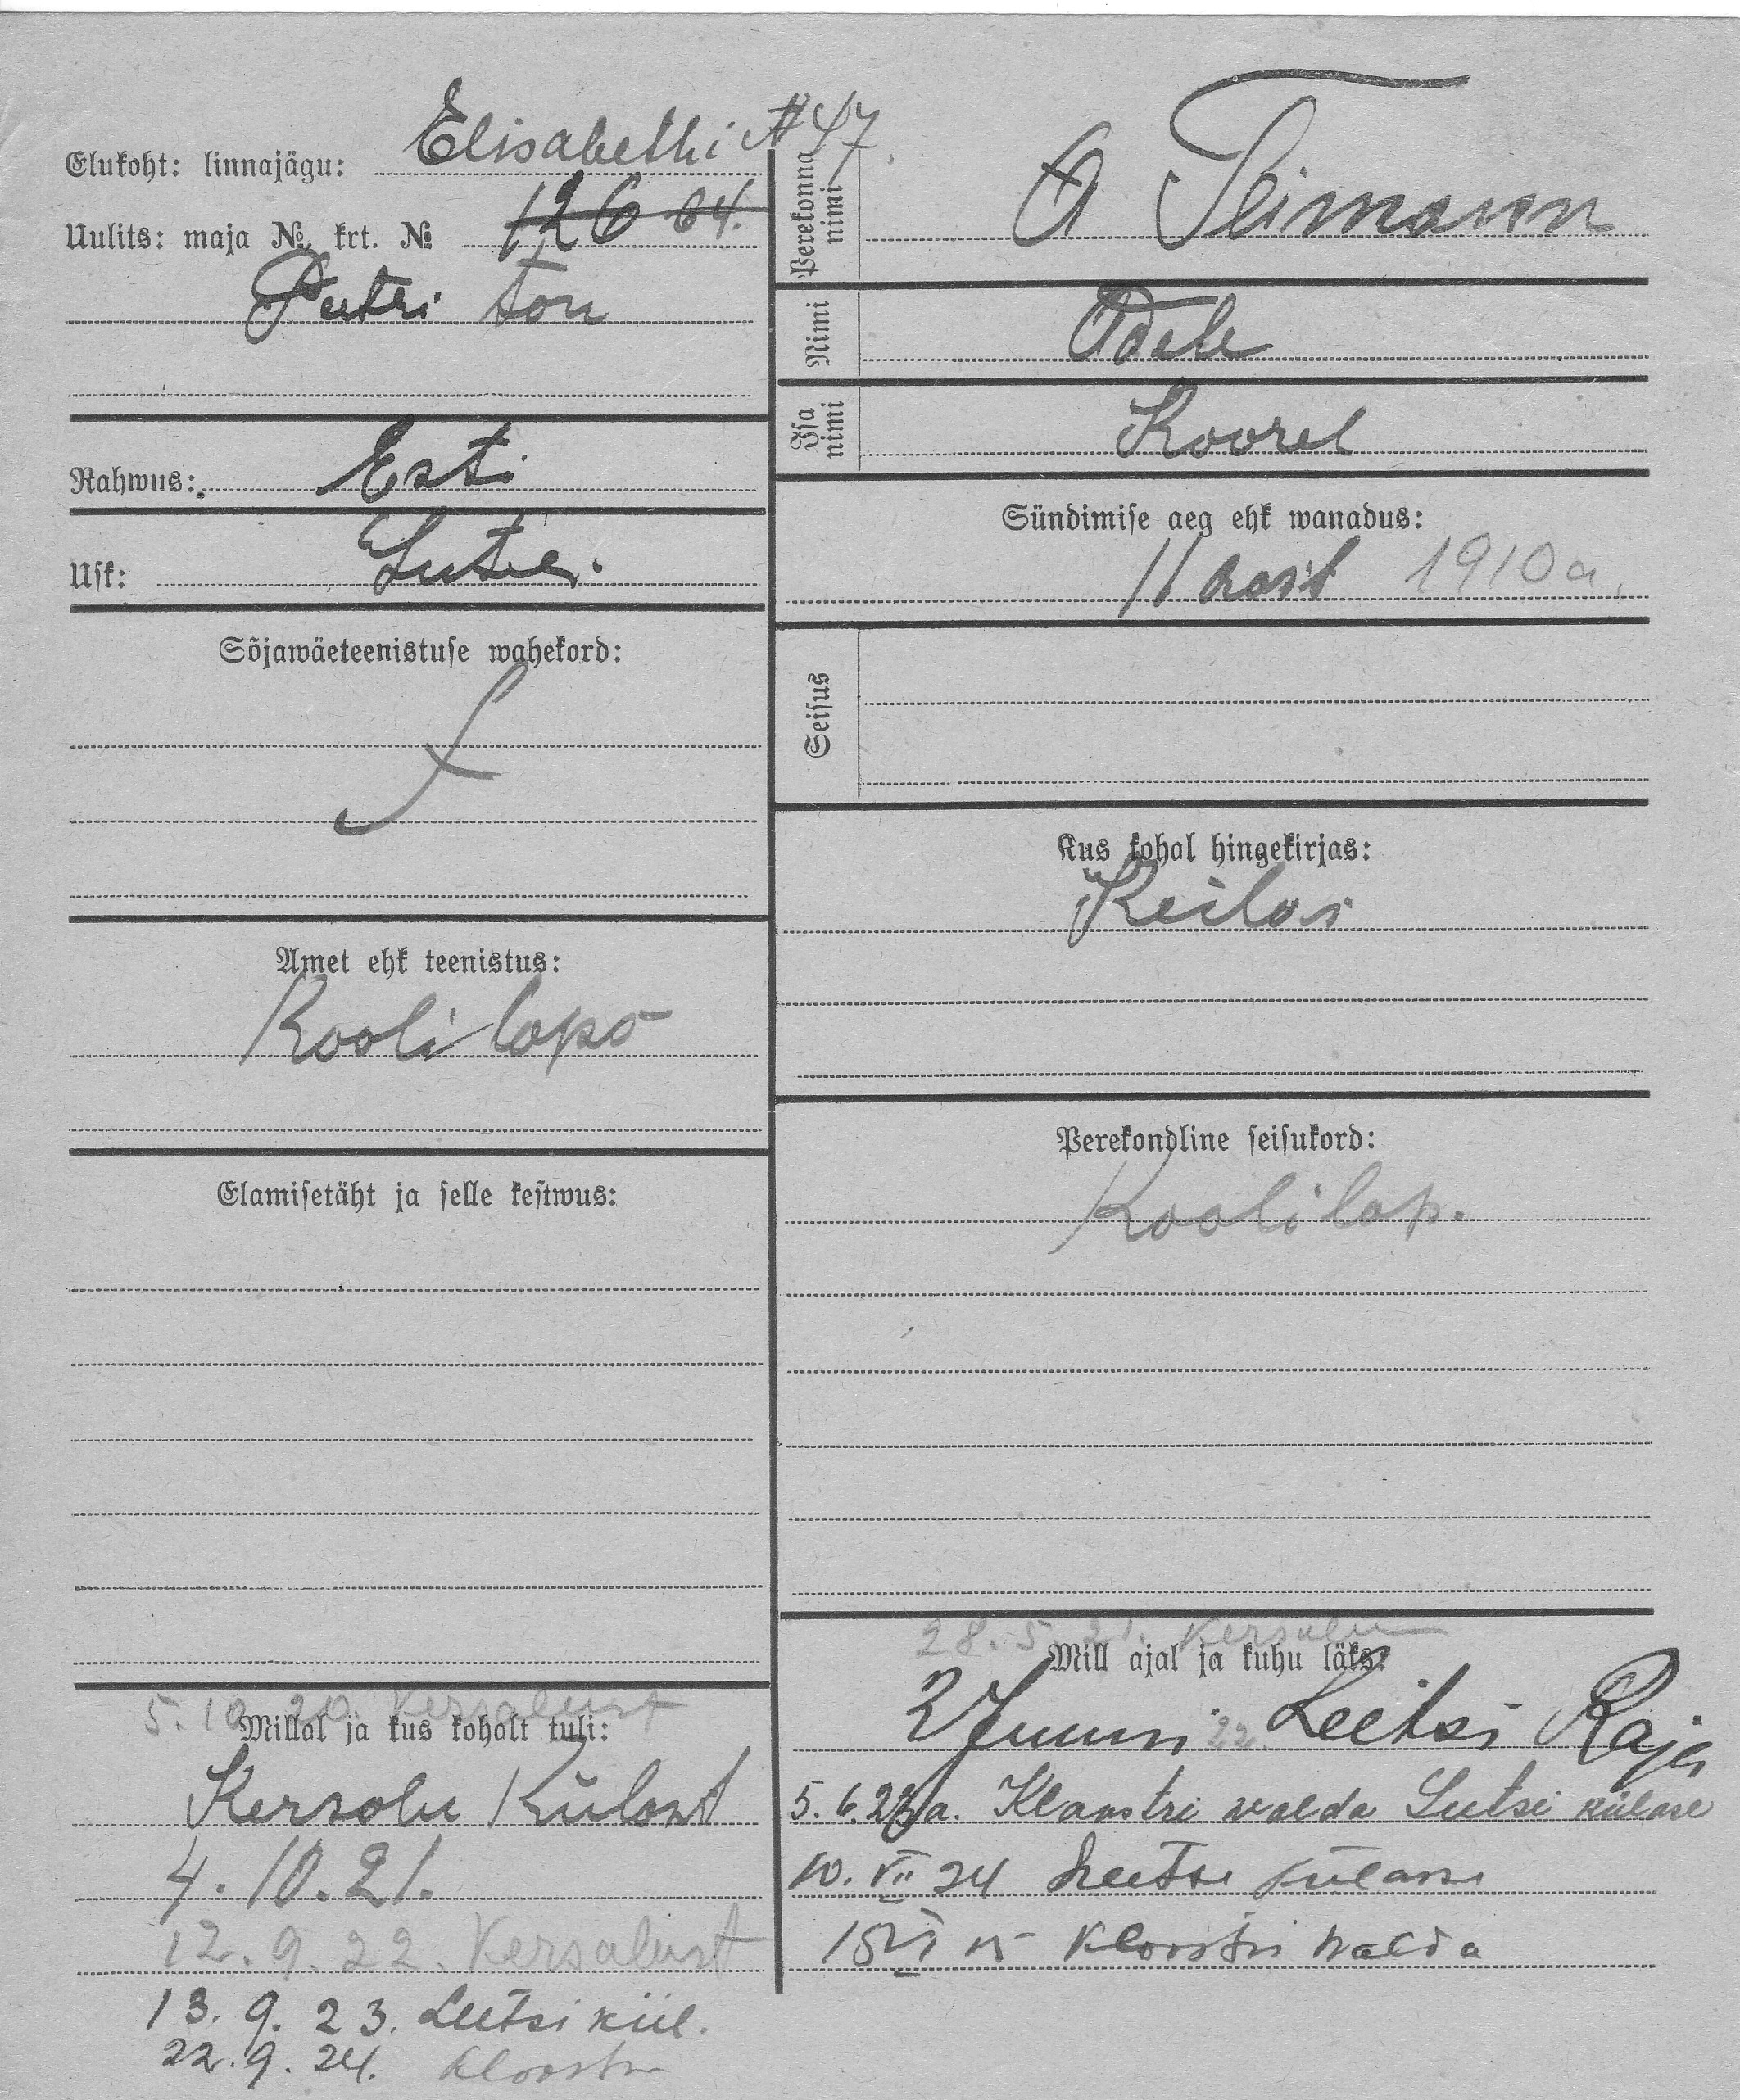 Elukoht: linnajägu: Elisabethi № 47.
Uulits: maja № krt. № 126 64.
Peetri ton
Rahwus: Esti
Usk: Luter.
Sõjawäeteenistuse wahekord:
Amet ehk teenistus:
Kooli laps
Elamisetäht ja selle kestwus:
5.10.20. Kersalust
Millal ja kus kohalt tuli:
Kersalu Külast
4.10.21.
12.9.22. Kersalust
13.9.23. Leetsi kül.
22.9.24. Kloostri
Perekonna nimi A Teimann
Nimi Adele
Isa nimi Kaarel
Sündimise aeg ehk wanadus:
11 aast 1910 a.
Seisus
Kus kohal hingekirjas:
Keilas
Perekondline seisukord:
Kooli lap.
28.5.21. Kersalu
Mill ajal ja kuhu läks:
2 Juuni 22 Leetsi Raja
5.6.23 a. Klaostri walda Leetsi külase
10. VII 24 Leetse külasse
15 VI 25 Kloostri walda